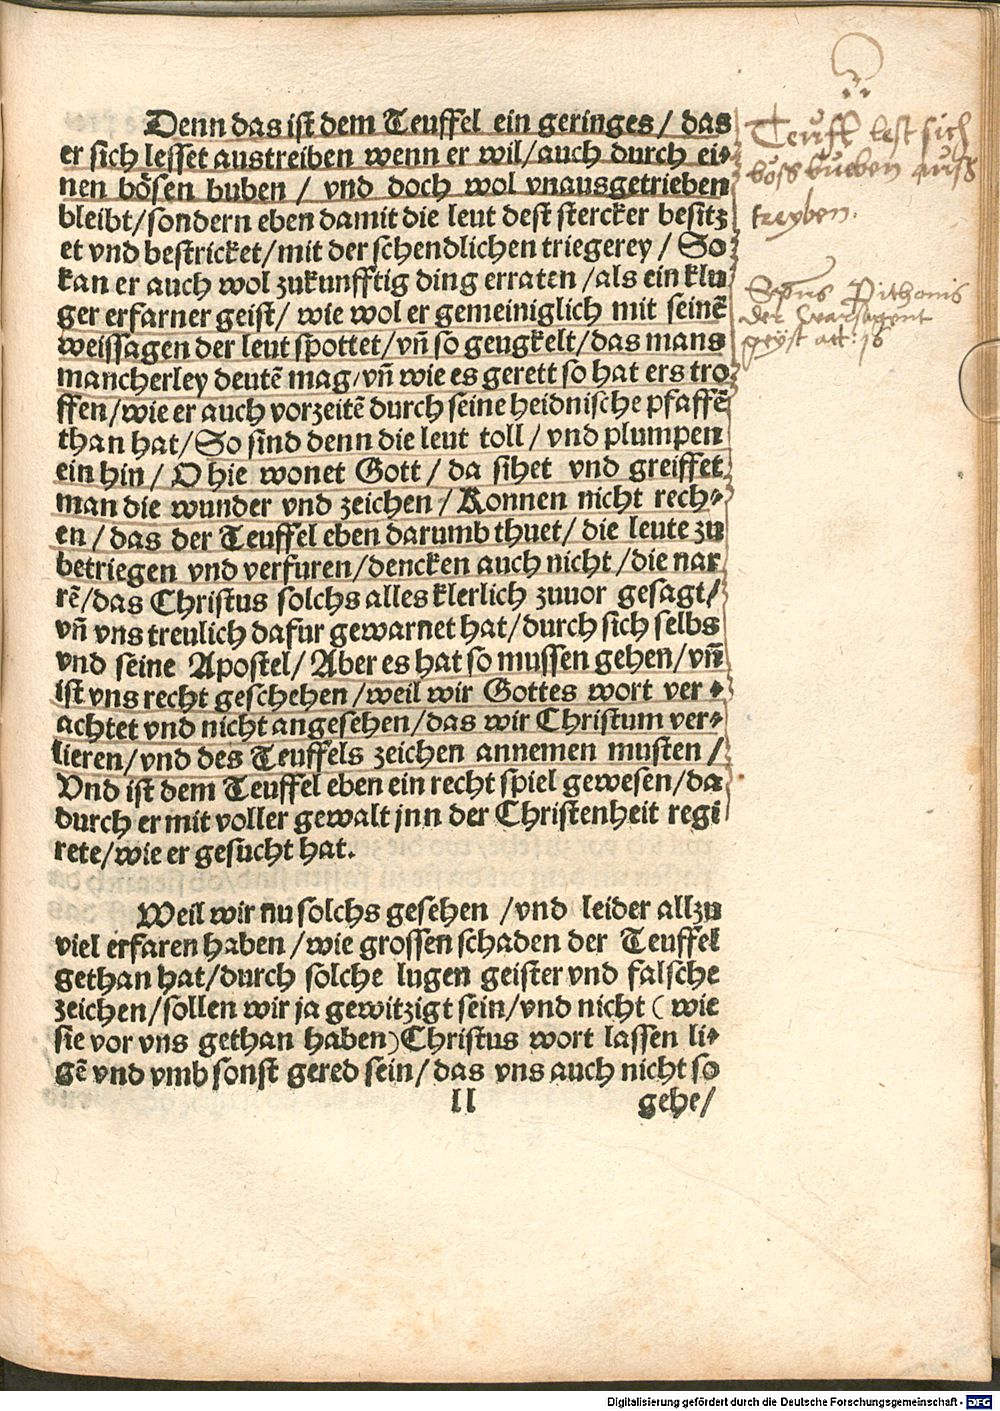 Denn das ist dem Teuffel ein geringes / das
er sich lesset austreiben wenn er wil / auch durch ei⸗
nen bösen buben / vnd doch wol vnausgetrieben
bleibt / sondern eben damit die leut dest stercker besitz
et vnd bestricket / mit der schendlichen triegerey / So
kan er auch wol zukunfftig ding erraten / als ein klu
ger erfarner geist / wie wol er gemeiniglich mit seinẽ
weissagen der leut spottet / vñ so geugkelt / das mans
mancherley deutẽ mag / vñ wie es gerett so hat ers tro
ffen / wie er auch vorzeitẽ durch seine heidnische pfaffẽ
than hat / So sind denn die leut toll / vnd plumpen
ein hin / O hie wonet Gott / da sihet vnd greiffet
man die wunder vnd zeichen / Konnen nicht rech⸗
en / das der Teuffel eben darumb thuet / die leute zu
betriegen vnd verfuren / dencken auch nicht / die nar
rẽ / das Christus solchs alles klerlich zuuor gesagt /
vñ vns treulich dafur gewarnet hat / durch sich selbs
vnd seine Apostel / Aber es hat so mussen gehen / vñ
ist vns recht geschehen / weil wir Gottes wort ver⸗
achtet vnd nicht angesehen / das wir Christum ver⸗
lieren / vnd des Teuffels zeichen annemen musten /
Vnd ist dem Teuffel eben ein recht spiel gewesen / da
durch er mit voller gewalt jnn der Christenheit regi
rete / wie er gesucht hat.
Weil wir nu solchs gesehen / vnd leider allzu
viel erfaren haben / wie grossen schaden der Teuffel
gethan hat / durch solche lugen geister vnd falsche
zeichen / sollen wir ja gewitzigt sein / vnd nicht ( wie
sie vor vns gethan haben ) Christus wort lassen li⸗
gẽ vnd vmb sonst gered sein / das vns auch nicht so
ll gehe /
Teufl lest sich
böss bueben auss
treyben.
Spũs Pithonis
der warsagent
geyst act: 16
Digitalisierung gefördert durch die Deutsche Forschungsgemeinschaft - DFG